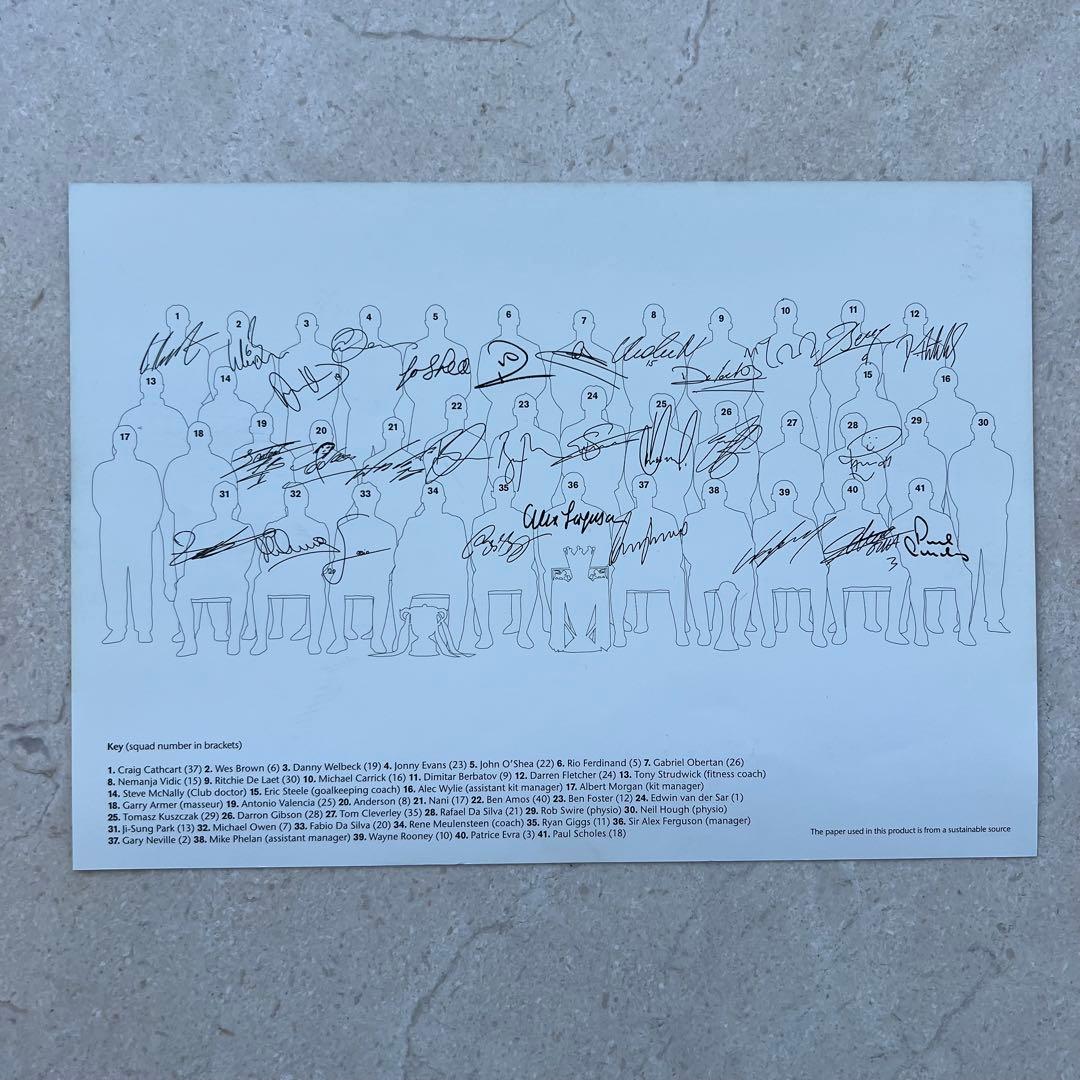 1 2 3 4 5 6 7 8 9 10 11 12
13 14 15 16
17 18 19 20 21 22 23 24 25 26 27 28 29 30
31 32 33 34 35 36 37 38 39 40 41
Jo Shea
Alex Ferguson
Paul Scholes
Key (squad number in brackets)
1. Craig Cathcart (37) 2. Wes Brown (6) 3. Danny Welbeck (19) 4. Jonny Evans (23) 5. John O'Shea (22) 6. Rio Ferdinand (5) 7. Gabriel Obertan (26)
8. Nemanja Vidic (15) 9. Ritchie De Laet (30) 10. Michael Carrick (16) 11. Dimitar Berbatov (9) 12. Darren Fletcher (24) 13. Tony Strudwick (fitness coach)
14. Steve McNally (Club doctor) 15. Eric Steele (goalkeeping coach) 16. Alec Wylie (assistant kit manager) 17. Albert Morgan (kit manager)
18. Garry Armer (masseur) 19. Antonio Valencia (25) 20. Anderson (8) 21. Nani (17) 22. Ben Amos (40) 23. Ben Foster (12) 24. Edwin van der Sar (1)
25. Tomasz Kuszczak (29) 26. Darron Gibson (28) 27. Tom Cleverley (35) 28. Rafael Da Silva (21) 29. Rob Swire (physio) 30. Neil Hough (physio)
31. Ji-Sung Park (13) 32. Michael Owen (7) 33. Fabio Da Silva (20) 34. Rene Meulensteen (coach) 35. Ryan Giggs (11) 36. Sir Alex Ferguson (manager)
37. Gary Neville (2) 38. Mike Phelan (assistant manager) 39. Wayne Rooney (10) 40. Patrice Evra (3) 41. Paul Scholes (18)
The paper used in this product is from a sustainable source